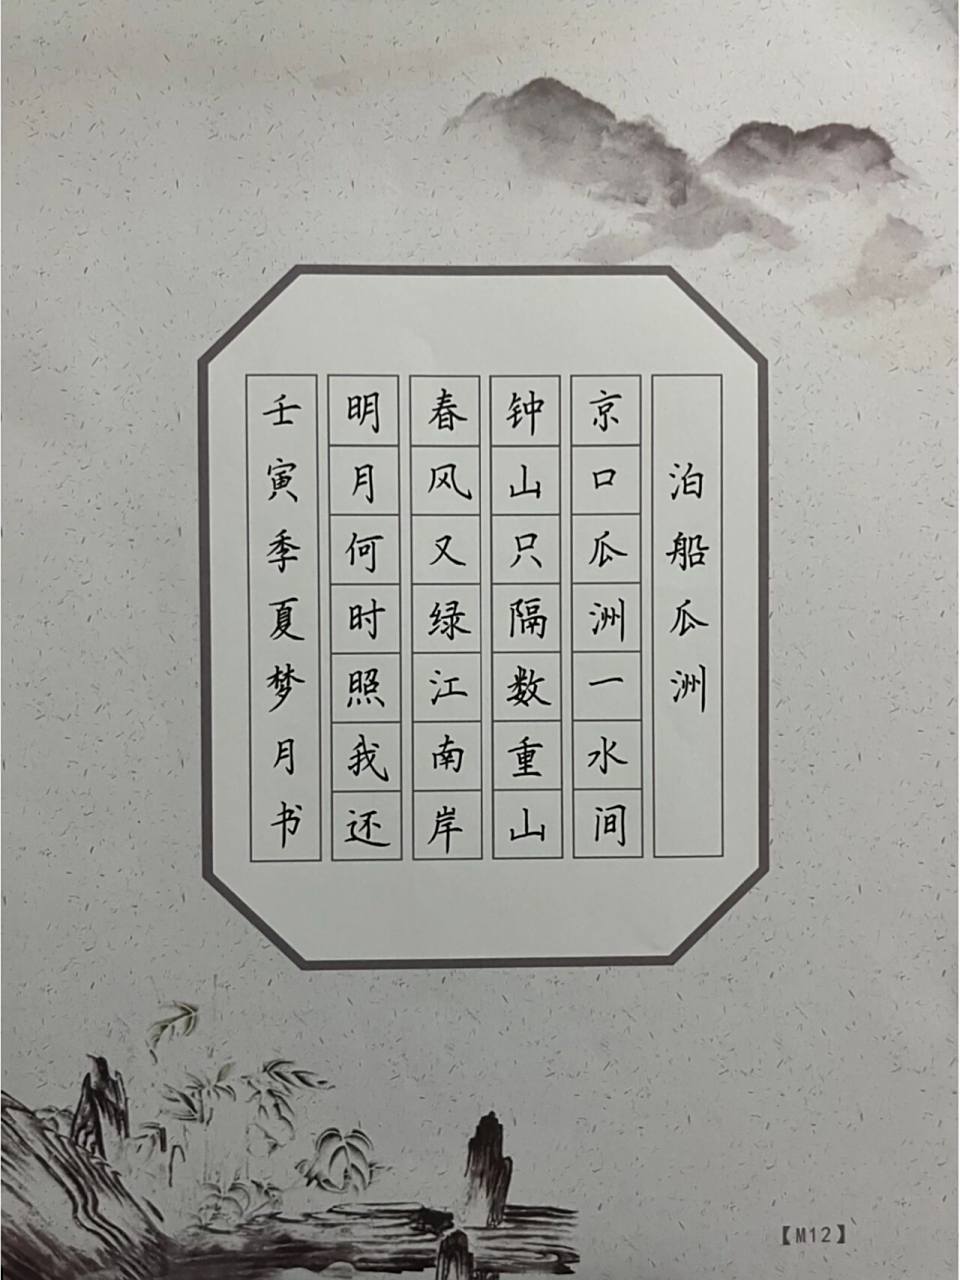 泊船瓜洲
京口瓜洲一水间
钟山只隔数重山
春风又绿江南岸
明月何时照我还
壬寅季夏梦月书
【M12】